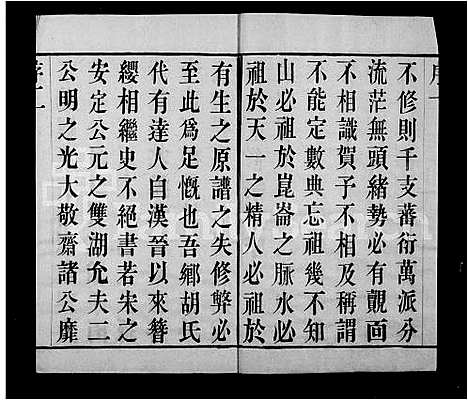 序一
不修則千支蕃衍萬派分
流茫無頭緒勢必有覿面
不相識賀予不相及稱謂
不能定數典忘祖幾不知
山必祖於崑崙之脉水必
祖於天一之精人必祖於
有生之原譜之失修弊必
至此爲足慨也吾鄉胡氏
代有達人自漢晉以來簪
纓相繼史不絕書若宋之
安定公元之雙湖允夫二
公明之光大敬齋諸公靡
序二